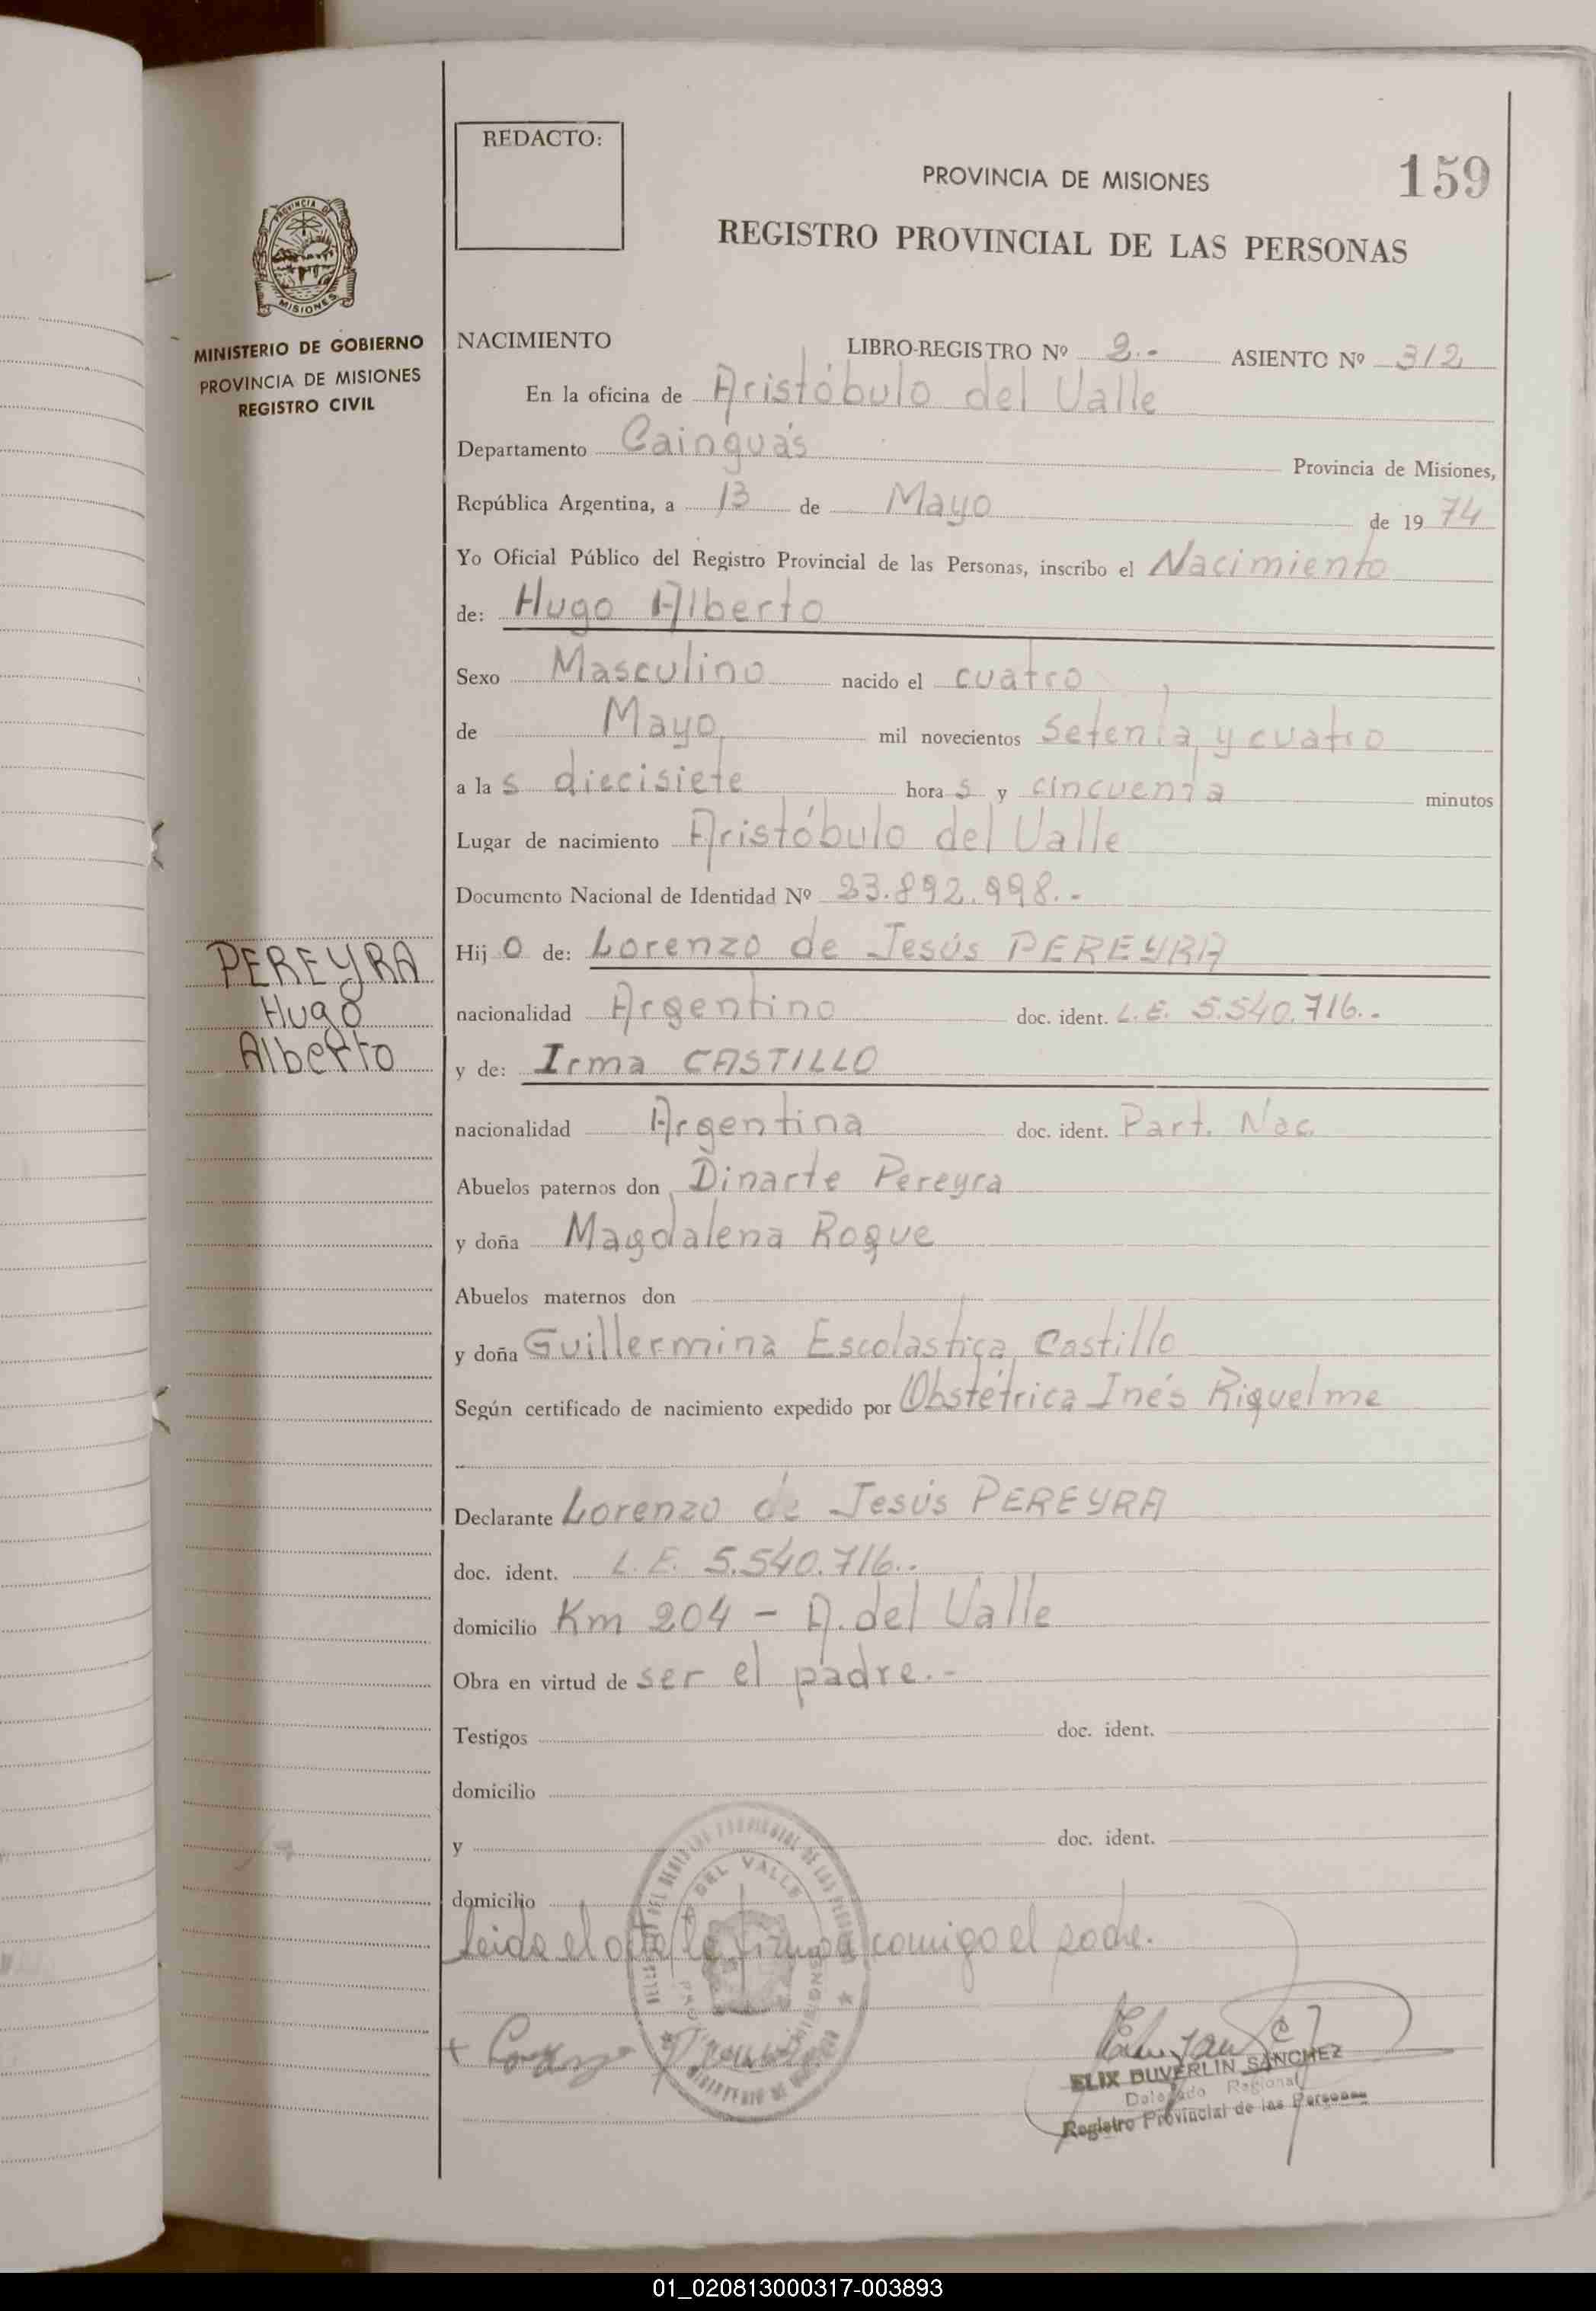 REDACTO:
PROVINCIA DE MISIONES
159
REGISTRO PROVINCIAL DE LAS PERSONAS
PROVINCIA DE
MISIONES
MINISTERIO DE GOBIERNO
PROVINCIA DE MISIONES
REGISTRO CIVIL
NACIMIENTO LIBRO-REGISTRO Nº 2.- ASIENTO Nº 312
En la oficina de Aristóbulo del Valle
Departamento Cainguás Provincia de Misiones,
República Argentina, a 13 de Mayo de 1974
Yo Oficial Público del Registro Provincial de las Personas, inscribo el Nacimiento
de: Hugo Alberto
Sexo Masculino nacido el cuatro
de Mayo mil novecientos setenta y cuatro
a las diecisiete horas y cincuenta minutos
Lugar de nacimiento Aristóbulo del Valle
Documento Nacional de Identidad Nº 23.892.998.-
PEREYRA
Hugo
Alberto
Hijo de: Lorenzo de Jesús PEREYRA
nacionalidad Argentino doc. ident. L.E. 5.540.716.-
y de: Irma CASTILLO
nacionalidad Argentina doc. ident. Part. Nac.
Abuelos paternos don Dinarte Pereyra
y doña Magdalena Roque
Abuelos maternos don
y doña Guillermina Escolástica Castillo
Según certificado de nacimiento expedido por Obstétrica Inés Riquelme
Declarante Lorenzo de Jesús PEREYRA
doc. ident. L.E. 5.540.716.-
domicilio Km 204 - A. del Valle
Obra en virtud de ser el padre.-
Testigos doc. ident.
domicilio
y doc. ident.
domicilio
Leida el acta la firma comigo el padre.
DEL VALLE
ELIX DUVERLIN SANCHEZ
Delegado Regional
Registro Provincial de las Personas
01_020813000317-003893